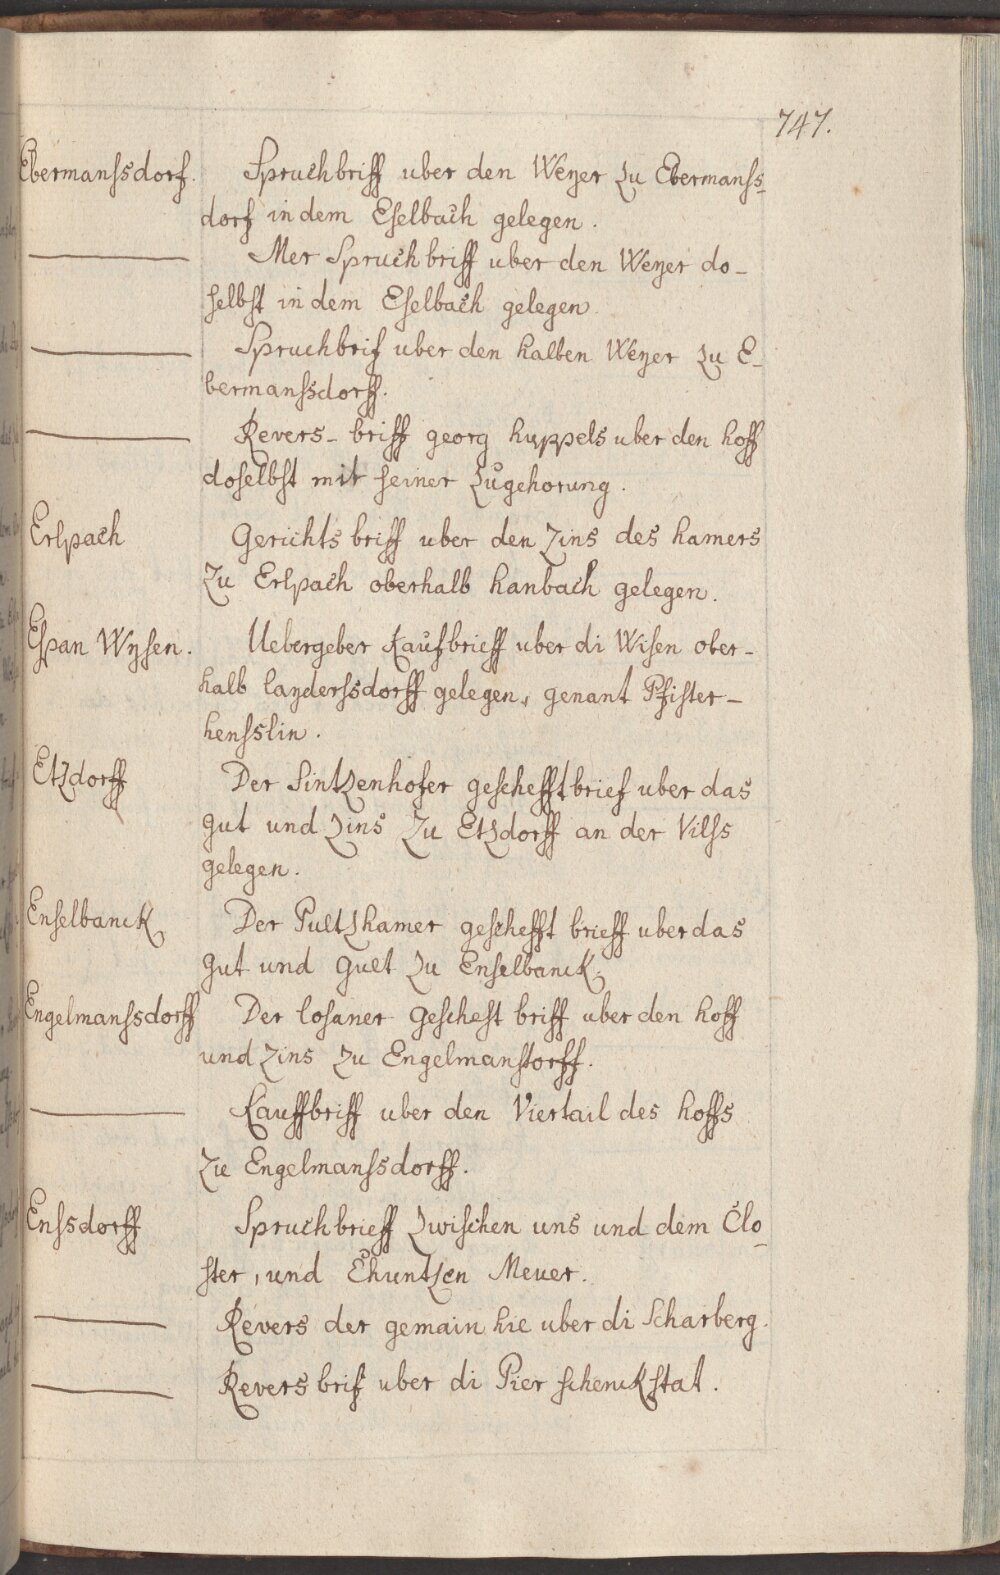 747.
Ebermanssdorf. Spruchbriff uber den Weyer zu Ebermanss-
dorf in dem Eselbach gelegen.
Mer Spruchbriff uber den Weyer do-
selbst in dem Eselbach gelegen
Spruchbrif uber den halben Weyer zu E-
bermanssdorff.
Revers-briff georg huppels uber den hoff
doselbst mit seiner Zugehorung.
Erlpach Gerichts briff uber den Zins des hamers
zu Erlpach oberhalb hanbach gelegen.
Espan Wysen. Uebergeber Kaufbrieff uber di Wisen ober-
halb layderssdorff gelegen, genant Pfister-
hensslin.
Etzdorff Der Sintzenhofer geschefftbrief uber das
gut und Zins zu Etzdorff an der Vilss
gelegen.
Enselbanck Der Pultzhamer geschefft brieff uber das
gut und gult zu Enselbanck.
Engelmanssdorff Der losaner geschest briff uber den hoff
und Zins zu Engelmanstorff.
Kauffbriff uber den Viertail des hoffs
zu Engelmanssdorff.
Enssdorff Spruchbrieff zwischen uns und dem Clo-
ster, und Chuntzen Meuer.
Revers der gemain hie uber di Scharberg.
Revers brif uber di Pier schenckstat.